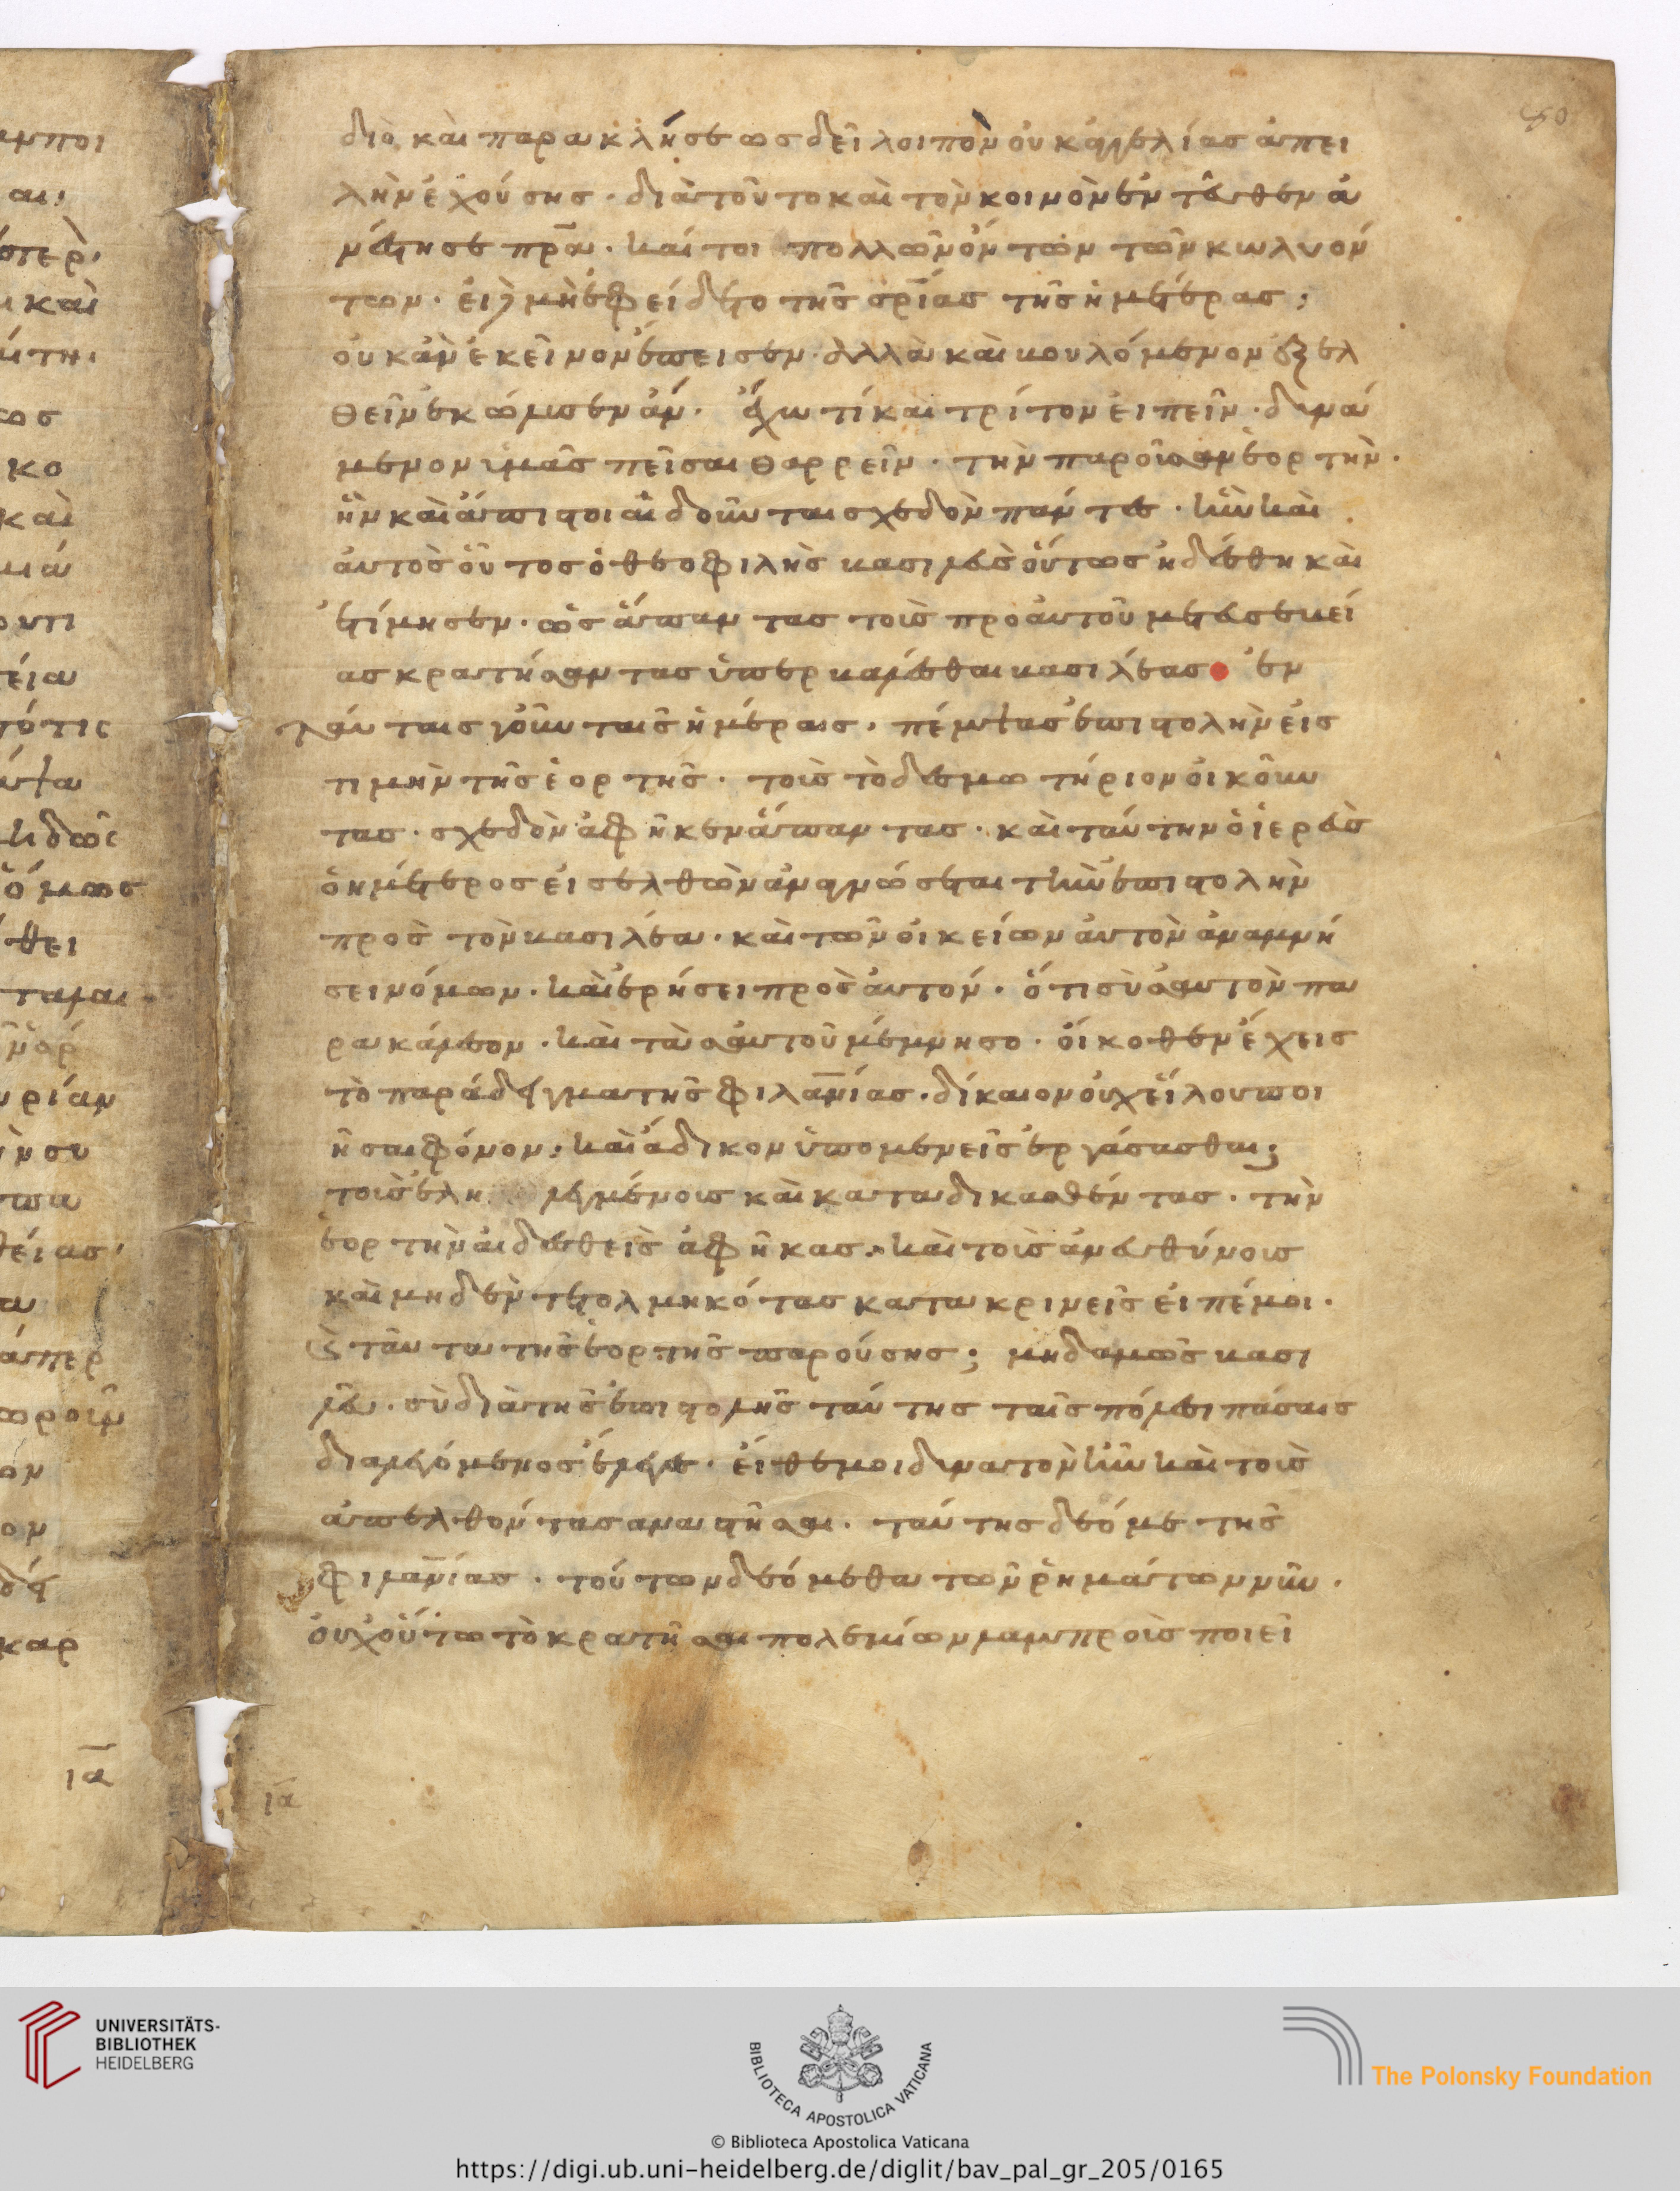 80
διὸ καὶ παρακλήσεως δεῖ λοιπὸν οὐκ ἀγγελίας ἀπει
λὴν ἐχούσης· διὰ τοῦτο καὶ τὸν κοινὸν ἐνταῦθεν ἀ
νέστησε πρ̅α· καί τοι πολλῶν ὄντων τῶν κωλυόν
των· εἰ γὰρ μὴ ἐφείδετο τῆς σρ̅ίας τῆς ἡμετέρας;
οὐκ ἂν ἐκεῖνον ἔπεισεν· ἀλλὰ καὶ βουλόμενον ἐξελ
θεῖν ἐκώλυσεν ἄν· ἔχω τί καὶ τρίτον εἰπεῖν· δυνά
μενον ὑμᾶς πεῖσαι θαρρεῖν· τὴν παροῦσαν ἑορτὴν·
ἣν καὶ ἄπιστοι αἰδοῦνται σχεδὸν πάντες· ἣν καὶ
αὐτὸς οὗτος ὁ θεοφιλὴς βασιλεὺς οὕτως ἠδέσθη καὶ
ἐτίμησεν· ὡς ἅπαντας τοὺς πρὸ αὐτοῦ μετ' εὐσεβεί
ας κρατήσαντας ὑπερβαλέσθαι βασιλέας· ἐν
ταύταις γοῦν ταῖς ἡμέραις· πέμψας ἐπιστολὴν εἰς
τιμὴν τῆς ἑορτῆς· τοὺς τὸ δεσμωτήριον οἰκοῦν
τας· σχεδὸν ἀφῆκεν ἅπαντας· καὶ ταύτην ὁ ἱερεὺς
ὁ ἡμέτερος εἰσελθὼν ἀναγνώσεται τὴν ἐπιστολὴν
πρὸς τὸν βασιλέα· καὶ τῶν οἰκείων αὐτὸν ἀναμνή
σει νόμων· καὶ ἐρήσει πρὸς αὐτόν· ὅτι σὺ σαυτὸν πα
ρακάλεσον· καὶ τὰ σαυτοῦ μέμνησο· οἴκοθεν ἔχεις
τὸ παράδειγμα τῆς φιλαν̅ίας· δίκαιον οὐχ εἵλου ποι
ῆσαι φόνον; καὶ ἄδικον ὑπομενεῖς ἐργάσασθαι;
τοὺς ἐληλεγμένους καὶ καταδικασθέντας· τὴν
ἑορτὴν αἰδεσθεὶς ἀφῆκας· καὶ τοὺς ἀνευθύνους
καὶ μηδὲν τετολμηκότας κατακρινεῖς εἰπέ μοι·
καὶ ταῦτα τῆς ἑορτῆς παρούσης; μηδαμῶς βασι
λεῦ· σὺ διὰ τῆς ἐπιστολῆς ταύτης ταῖς πόλεσι πάσαις
διαλεγόμενος ἔλεγες· εἴθε μοι δυνατὸν ἦν καὶ τοὺς
ἀπελθόντας ἀναστῆσαι· ταύτης δεόμε τῆς
φιλαν̅ίας· τούτων δεόμεθα τῶν ῥημάτων νῦν·
οὐχ οὕτω τὸ κρατῆσαι πολεμίων λαμπροὺς ποιεῖ
ια̅
ια̅
UNIVERSITÄTS-
BIBLIOTHEK
HEIDELBERG
BIBLIOTECA APOSTOLICA VATICANA
The Polonsky Foundation
© Biblioteca Apostolica Vaticana
https://digi.ub.uni-heidelberg.de/diglit/bav_pal_gr_205/0165